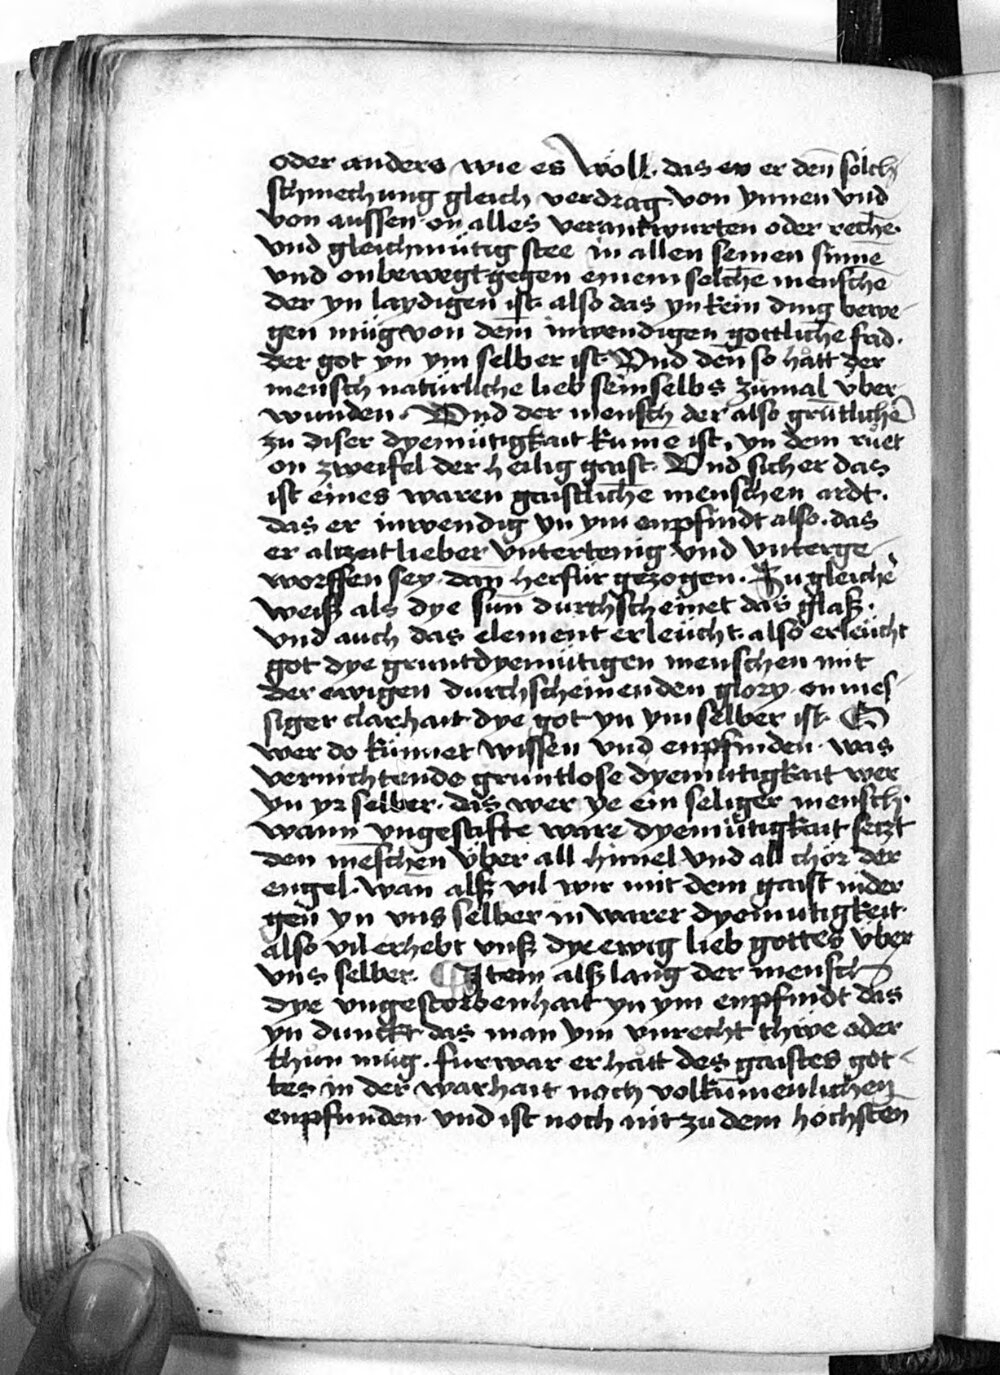 oder anders wie es wöll. das er er den̄ sölch
schmechung gleich verdrag von ynnen vnd
von aussen on alles verantwurten oder reche̅.
vnd gleichmütig stee in allen seinen sinne̅
vnd onbewegt gegen einem selche̅ mensche̅
der yn laydigen ist. also das yn kein ding bewe-
gen müg von dem inwendigen gottliche̅ frid.
der got yn ym selber ist. Vnd den̄ so hått der
mensch natürliche lieb sein selbs zümal über
wunden. Vnd der mensch der also grütliche̅
zu diser dyemütigkait kume̅ ist, yn dem růet
on zweifel der heilig gaist. Vnd sicher das
ist eines waren gaistliche̅ menschen ardt.
das er inwendig yn ym enpfindt also. das
er alzeit lieber vntertenig vnd vnterge-
worffen sey. dan̄ herfür gezogen. Zu gleiche̅
weiß als dye sun̄ durchscheinet das glaß.
vnd auch das element erleücht. also erleücht
got dye gruntdyemütigen menschen mit
der ewigen durchscheinenden glory. on mes-
siger clarhait dye got yn ym selber ist. O
wer do künnet wissen vnd enpfinden. was
vernichtende gruntlose dyemütigkait wer
yn yr selber. das wer ye ein seliger mensch.
wann vngestifte ware dyemütigkait setzt
den me̅schen über all himel vnd all chör der
engel. wan̄ alß vil wir mit dem gaist nider
gen̄ yn vns selber in warer dyemutigkeit.
also vil erhebt vnß dye ewig lieb gottes vber
vns selber. ¶ Item alß lang der mensch
dye vngestorbenhait yn ym enpfindt das
yn dunckt das man ym vnrecht thwe oder
thun müg. furwar er hått des gaistes got-
tes in der warhait noch volkümenlichen
enpfunden. vnd ist noch nit zu dem hochsten